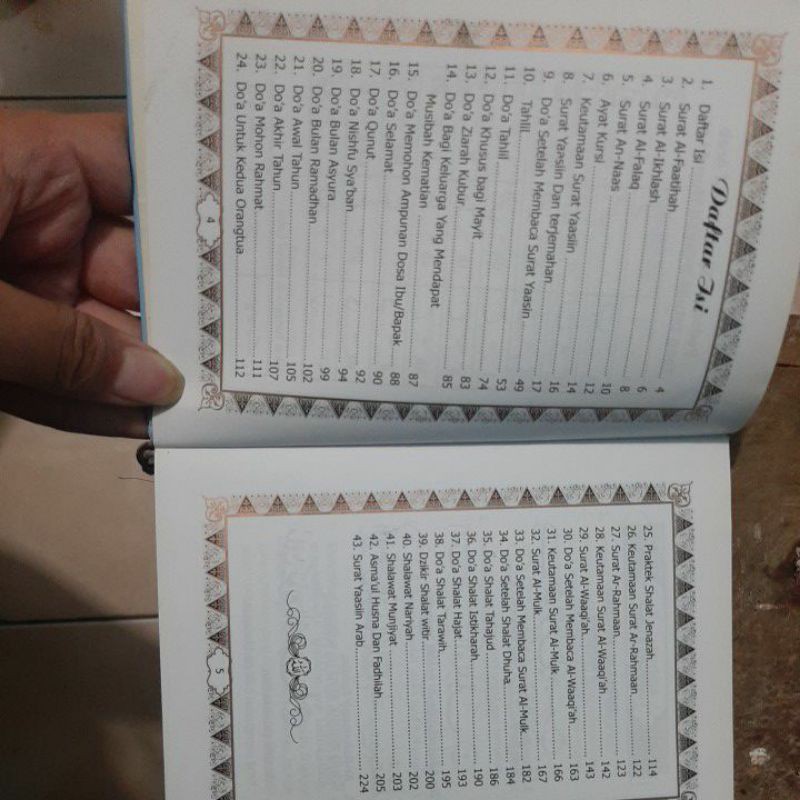 Daftar Isi
1. Daftar Isi 4
2. Surat Al-Faatihah 6
3. Surat Al-Ikhlash 8
4. Surat Al-Falaq 10
5. Surat An-Naas 12
6. Ayat Kursi 14
7. Keutamaan Surat Yaasiin 16
8. Surat Yaasiin Dan terjemahan 17
9. Do'a Setelah Membaca Surat Yaasin 49
10. Tahlil 53
11. Do'a Tahlil 74
12. Do'a Khusus bagi Mayit 83
13. Do'a Ziarah Kubur 85
14. Do'a Bagi Keluarga Yang Mendapat
Musibah Kematian 87
15. Do'a Memohon Ampunan Dosa Ibu/Bapak 88
16. Do'a Selamat 90
17. Do'a Qunut 92
18. Do'a Nishfu Sya'ban 94
19. Do'a Bulan Asyura 99
20. Do'a Bulan Ramadhan 102
21. Do'a Awal Tahun 105
22. Do'a Akhir Tahun 107
23. Do'a Mohon Rahmat 111
24. Do'a Untuk Kedua Orangtua 112
4
25. Praktek Shalat Jenazah 114
26. Keutamaan Surat Ar-Rahmaan 122
27. Surat Ar-Rahmaan 123
28. Keutamaan Surat Al-Waaqi'ah 142
29. Surat Al-Waaqi'ah 143
30. Do'a Setelah Membaca Al-Waaqi'ah 163
31. Keutamaan Surat Al-Mulk 166
32. Surat Al-Mulk 167
33. Do'a Setelah Membaca Surat Al-Mulk 182
34. Do'a Setelah Shalat Dhuha 184
35. Do'a Shalat Tahajud 186
36. Do'a Shalat Istikharah 190
37. Do'a Shalat Hajat 193
38. Do'a Shalat Tarawih 195
39. Dzikir Shalat witir 200
40. Shalawat Nariyah 202
41. Shalawat Munjiyat 203
42. Asma'ul Husna Dan Fadhilah 205
43. Surat Yaasiin Arab 224
5